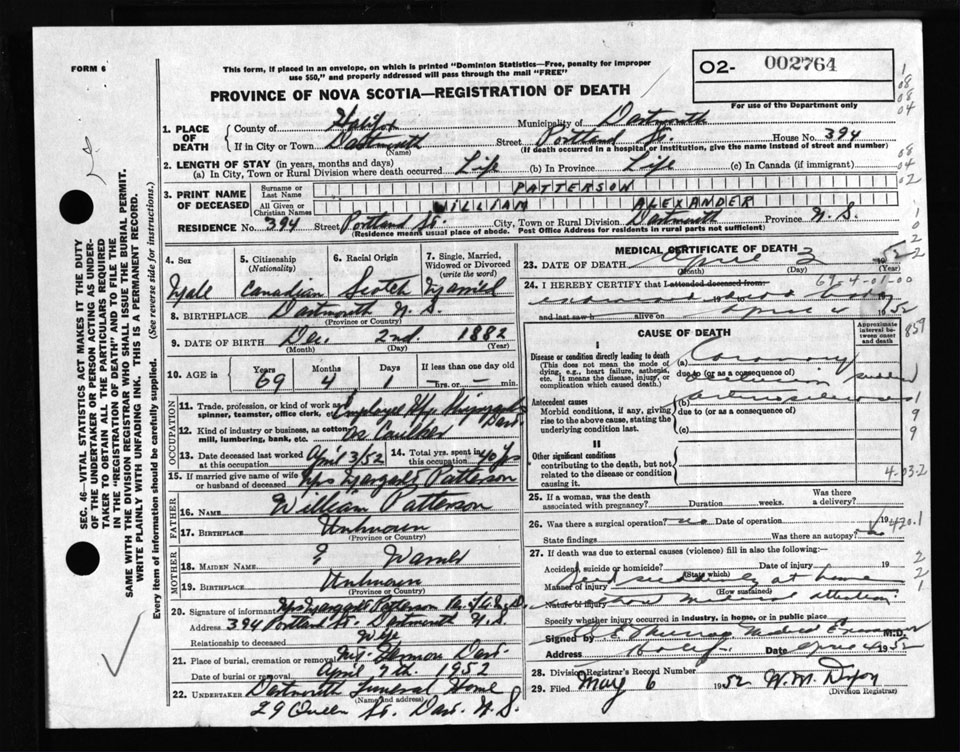 FORM 6
This form, if placed in an envelope, on which is printed "Dominion Statistics—Free, penalty for improper
use $50," and properly addressed will pass through the mail "FREE"
O2- 002764
For use of the Department only
PROVINCE OF NOVA SCOTIA—REGISTRATION OF DEATH
1. PLACE OF DEATH
County of Halifax Municipality of Dartmouth
If in City or Town Dartmouth (Name) Street Portland St. House No. 394
(If death occurred in a hospital or institution, give the name instead of street and number)
2. LENGTH OF STAY (in years, months and days)
(a) In City, Town or Rural Division where death occurred Life (b) In Province Life (c) In Canada (if immigrant)
3. PRINT NAME OF DECEASED
Surname or Last Name PATTERSON
All Given or Christian Names WILLIAM ALEXANDER
RESIDENCE No. 394 Street Portland St. City, Town or Rural Division Dartmouth Province N.S.
(Residence means usual place of abode. Post Office Address for residents in rural parts not sufficient)
4. Sex
Male
5. Citizenship (Nationality)
Canadian
6. Racial Origin
Scotch
7. Single, Married, Widowed or Divorced (write the word)
Married
8. BIRTHPLACE Dartmouth N.S.
(Province or Country)
9. DATE OF BIRTH Dec. 2nd. 1882
(Month) (Day) (Year)
10. AGE in Years 69 Months 4 Days 1 If less than one day old — hrs. or — min.
OCCUPATION
11. Trade, profession, or kind of work as spinner, teamster, office clerk, etc. Employed Dart.
12. Kind of industry or business, as cotton mill, lumbering, bank, etc. As Caulker
13. Date deceased last worked at this occupation April 3/52 14. Total yrs. spent in this occupation 40 yrs
15. If married give name of wife or husband of deceased Mrs Margaret Patterson
FATHER
16. NAME William Patterson
17. BIRTHPLACE Unknown
(Province or Country)
MOTHER
18. MAIDEN NAME
19. BIRTHPLACE Unknown
(Province or Country)
20. Signature of informant Mrs Margaret Patterson
Address 394 Portland St. Dartmouth N.S.
Relationship to deceased Wife
21. Place of burial, cremation or removal Mt. Hermon Dart.
Date of burial or removal April 7th. 1952
22. UNDERTAKER Dartmouth Funeral Home
(Name and address)
29 Queen St. Dart. N.S.
MEDICAL CERTIFICATE OF DEATH
23. DATE OF DEATH April 3 1952
(Month) (Day) (Year)
24. I HEREBY CERTIFY that I attended deceased from
examined dead body
and last saw h alive on April 4 1952
69-4-01-00
CAUSE OF DEATH
Approximate interval between onset and death
I
Disease or condition directly leading to death
(This does not mean the mode of dying, e.g., heart failure, asthenia, etc. It means the disease, injury, or complication which caused death.)
(a) Coronary
due to (or as a consequence of) occlusion sudden
Antecedent causes
Morbid conditions, if any, giving rise to the above cause, stating the underlying condition last.
(b) arteriosclerosis
due to (or as a consequence of)
(c)
II
Other significant conditions
contributing to the death, but not related to the disease or condition causing it.
4-03-2
25. If a woman, was the death associated with pregnancy? Duration weeks. Was there a delivery?
26. Was there a surgical operation? no Date of operation 19 420.1
State findings Was there an autopsy? no
27. If death was due to external causes (violence) fill in also the following:—
Accident, suicide or homicide? (State which) Date of injury 19
Manner of injury died suddenly at home (How sustained)
Nature of injury without medical attention
Specify whether injury occurred in industry, in home, or in public place
Signed by Murray Medical Examiner M.D.
Address Halifax Date April 4 1952
28. Division Registrar's Record Number
29. Filed May 6 1952 W. M. Dixon
(Division Registrar)
SEC. 46—VITAL STATISTICS ACT MAKES IT THE DUTY
OF THE UNDERTAKER OR PERSON ACTING AS UNDER-
TAKER TO OBTAIN ALL THE PARTICULARS REQUIRED
IN THE "REGISTRATION OF DEATH" AND TO FILE THE
SAME WITH THE DIVISION REGISTRAR WHO SHALL ISSUE THE BURIAL PERMIT.
WRITE PLAINLY WITH UNFADING INK. THIS IS A PERMANENT RECORD.
Every item of information should be carefully supplied. (See reverse side for instructions.)